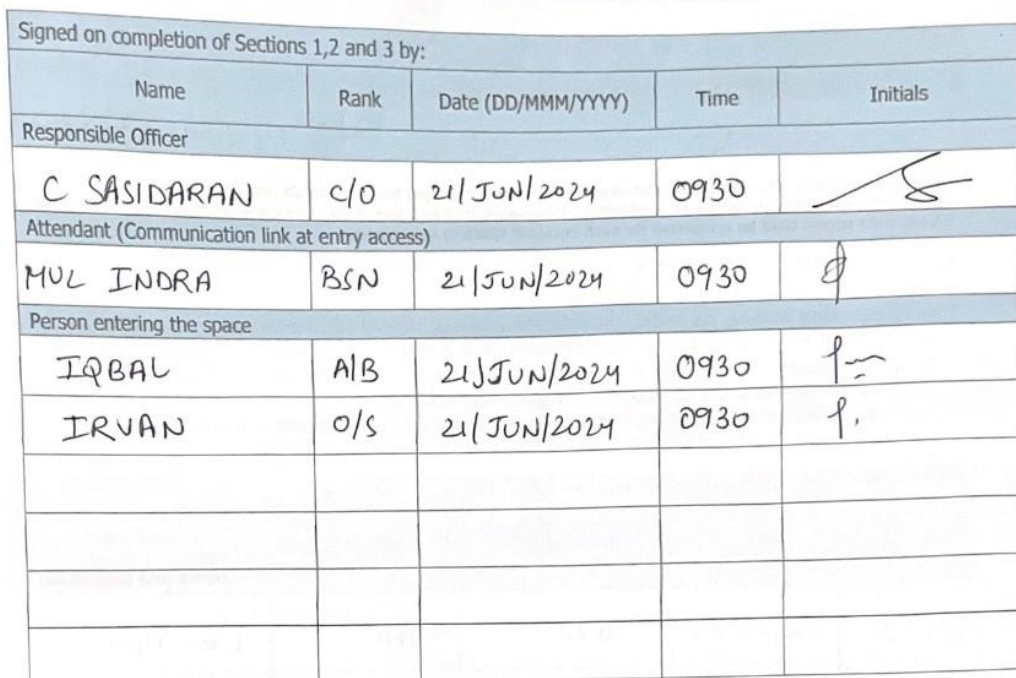 Signed on completion of Sections 1,2 and 3 by:
Name Rank Date (DD/MMM/YYYY) Time Initials
Responsible Officer
C SASIDARAN C/O 21/JUN/2024 0930
Attendant (Communication link at entry access)
MUL INDRA BSN 21/JUN/2024 0930
Person entering the space
IQBAL A/B 21/JUN/2024 0930
IRVAN O/S 21/JUN/2024 0930